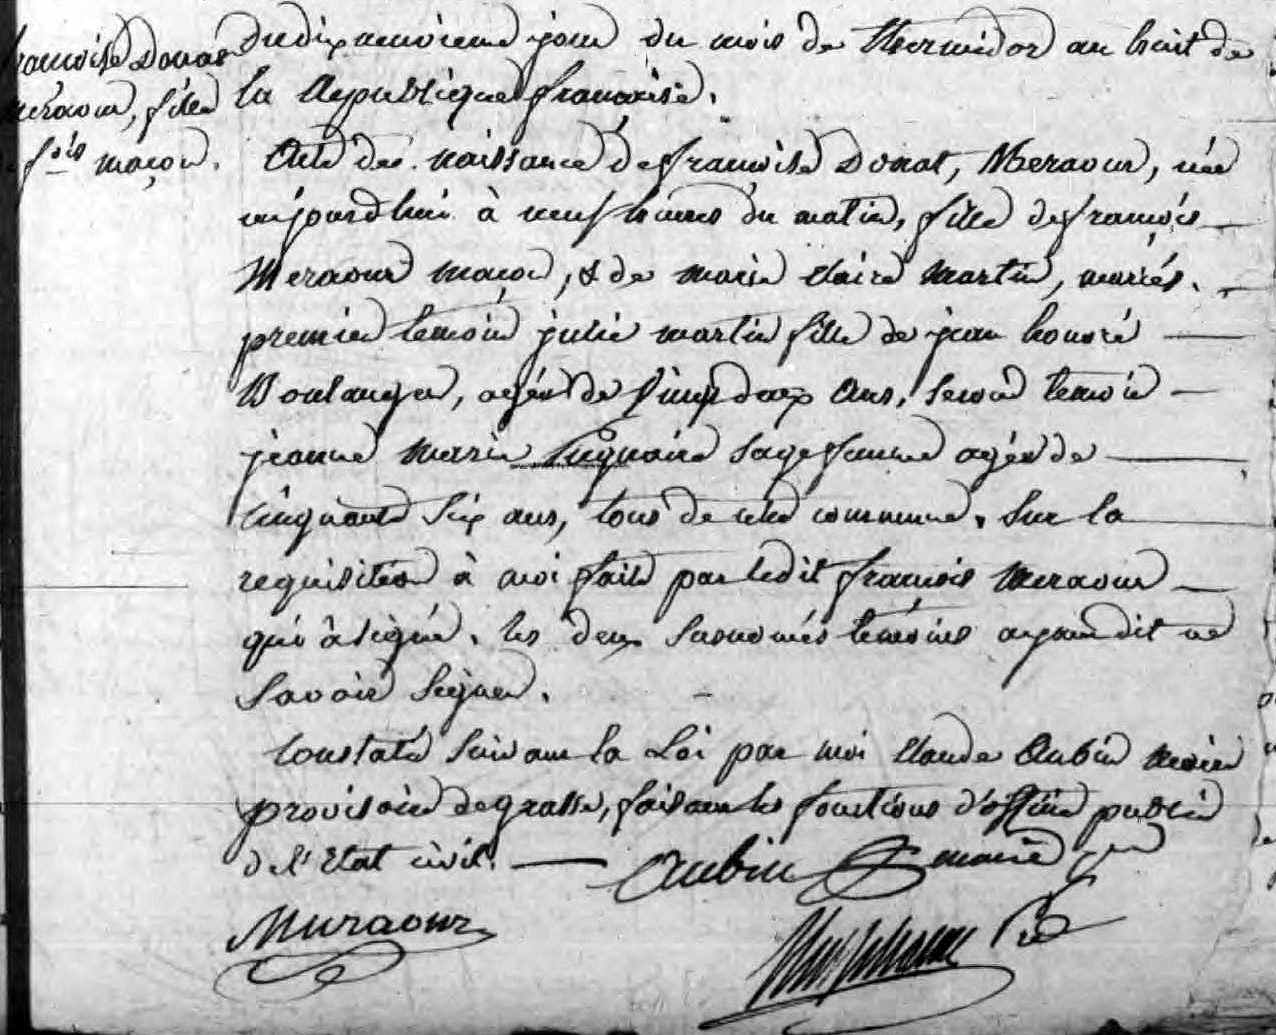 françoise Donat
Meraour, fille
fois maçon.
Du dixneuvieme jour du mois de Thermidor an huit de
la Republique française.
Acte de naissance de françoise Donat, Meraour, née
aujourdhui à neuf heures du matin, fille de françois
Meraour maçon, & de marie Claire Martin, mariés.
premier temoin julie martin fille de jean honoré
Boulanger, agée de vingt deux ans, second temoin
jeanne marie sagefamme agée de
cinquante six ans, tous de cette commune. Sur la
requisition à moi faite par ledit françois Meraour
qui à signé. les deux susnomés temoins ayant dit ne
savoir signer.
Constaté suivant la Loi par moi Claude Aubin Maire
provisoire de grasse, faisant les fonctions d'officier public
de l'Etat civil.
Aubin maire
Muraour